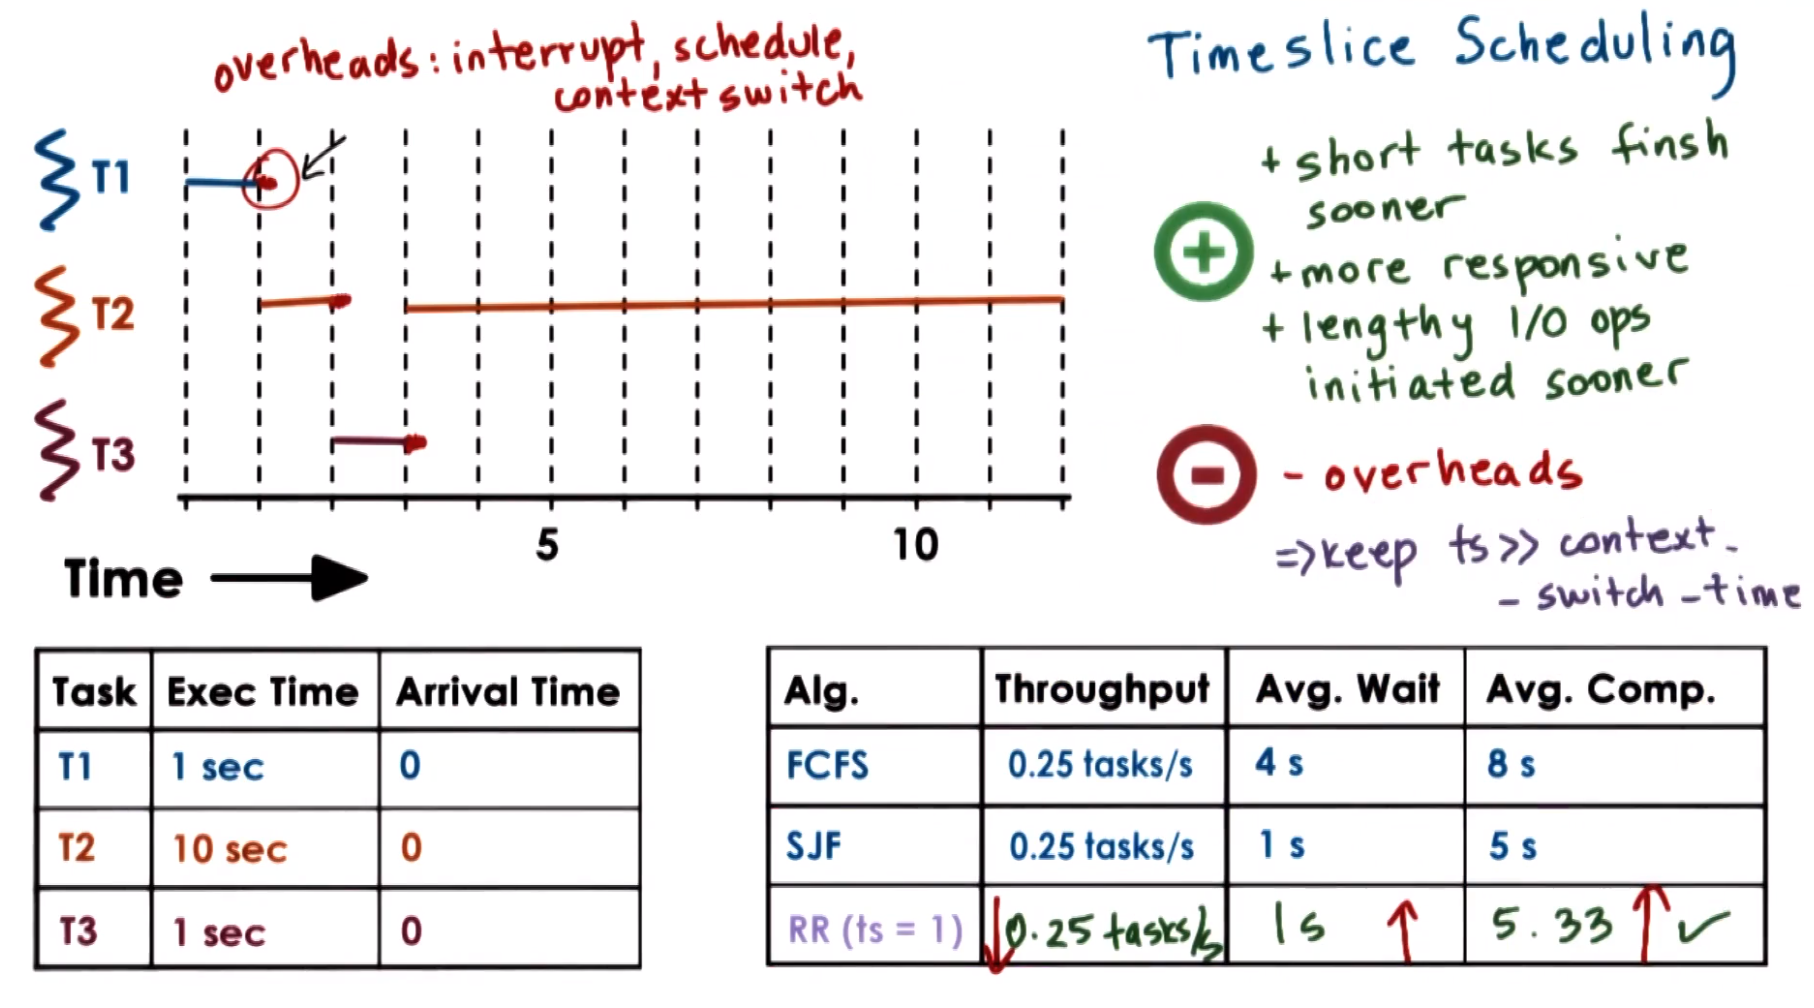 overheads: interrupt, schedule,
context switch
Timeslice Scheduling
T1
T2
T3
5
10
Time
+ short tasks finsh
sooner
+ more responsive
+ lengthy I/O ops
initiated sooner
- overheads
=> keep ts >> context-
- switch - time
Task Exec Time Arrival Time
T1 1 sec 0
T2 10 sec 0
T3 1 sec 0
Alg. Throughput Avg. Wait Avg. Comp.
FCFS 0.25 tasks/s 4 s 8 s
SJF 0.25 tasks/s 1 s 5 s
RR (ts = 1) ↓ 0.25 tasks/s 1s ↑ 5.33 ↑ ✓